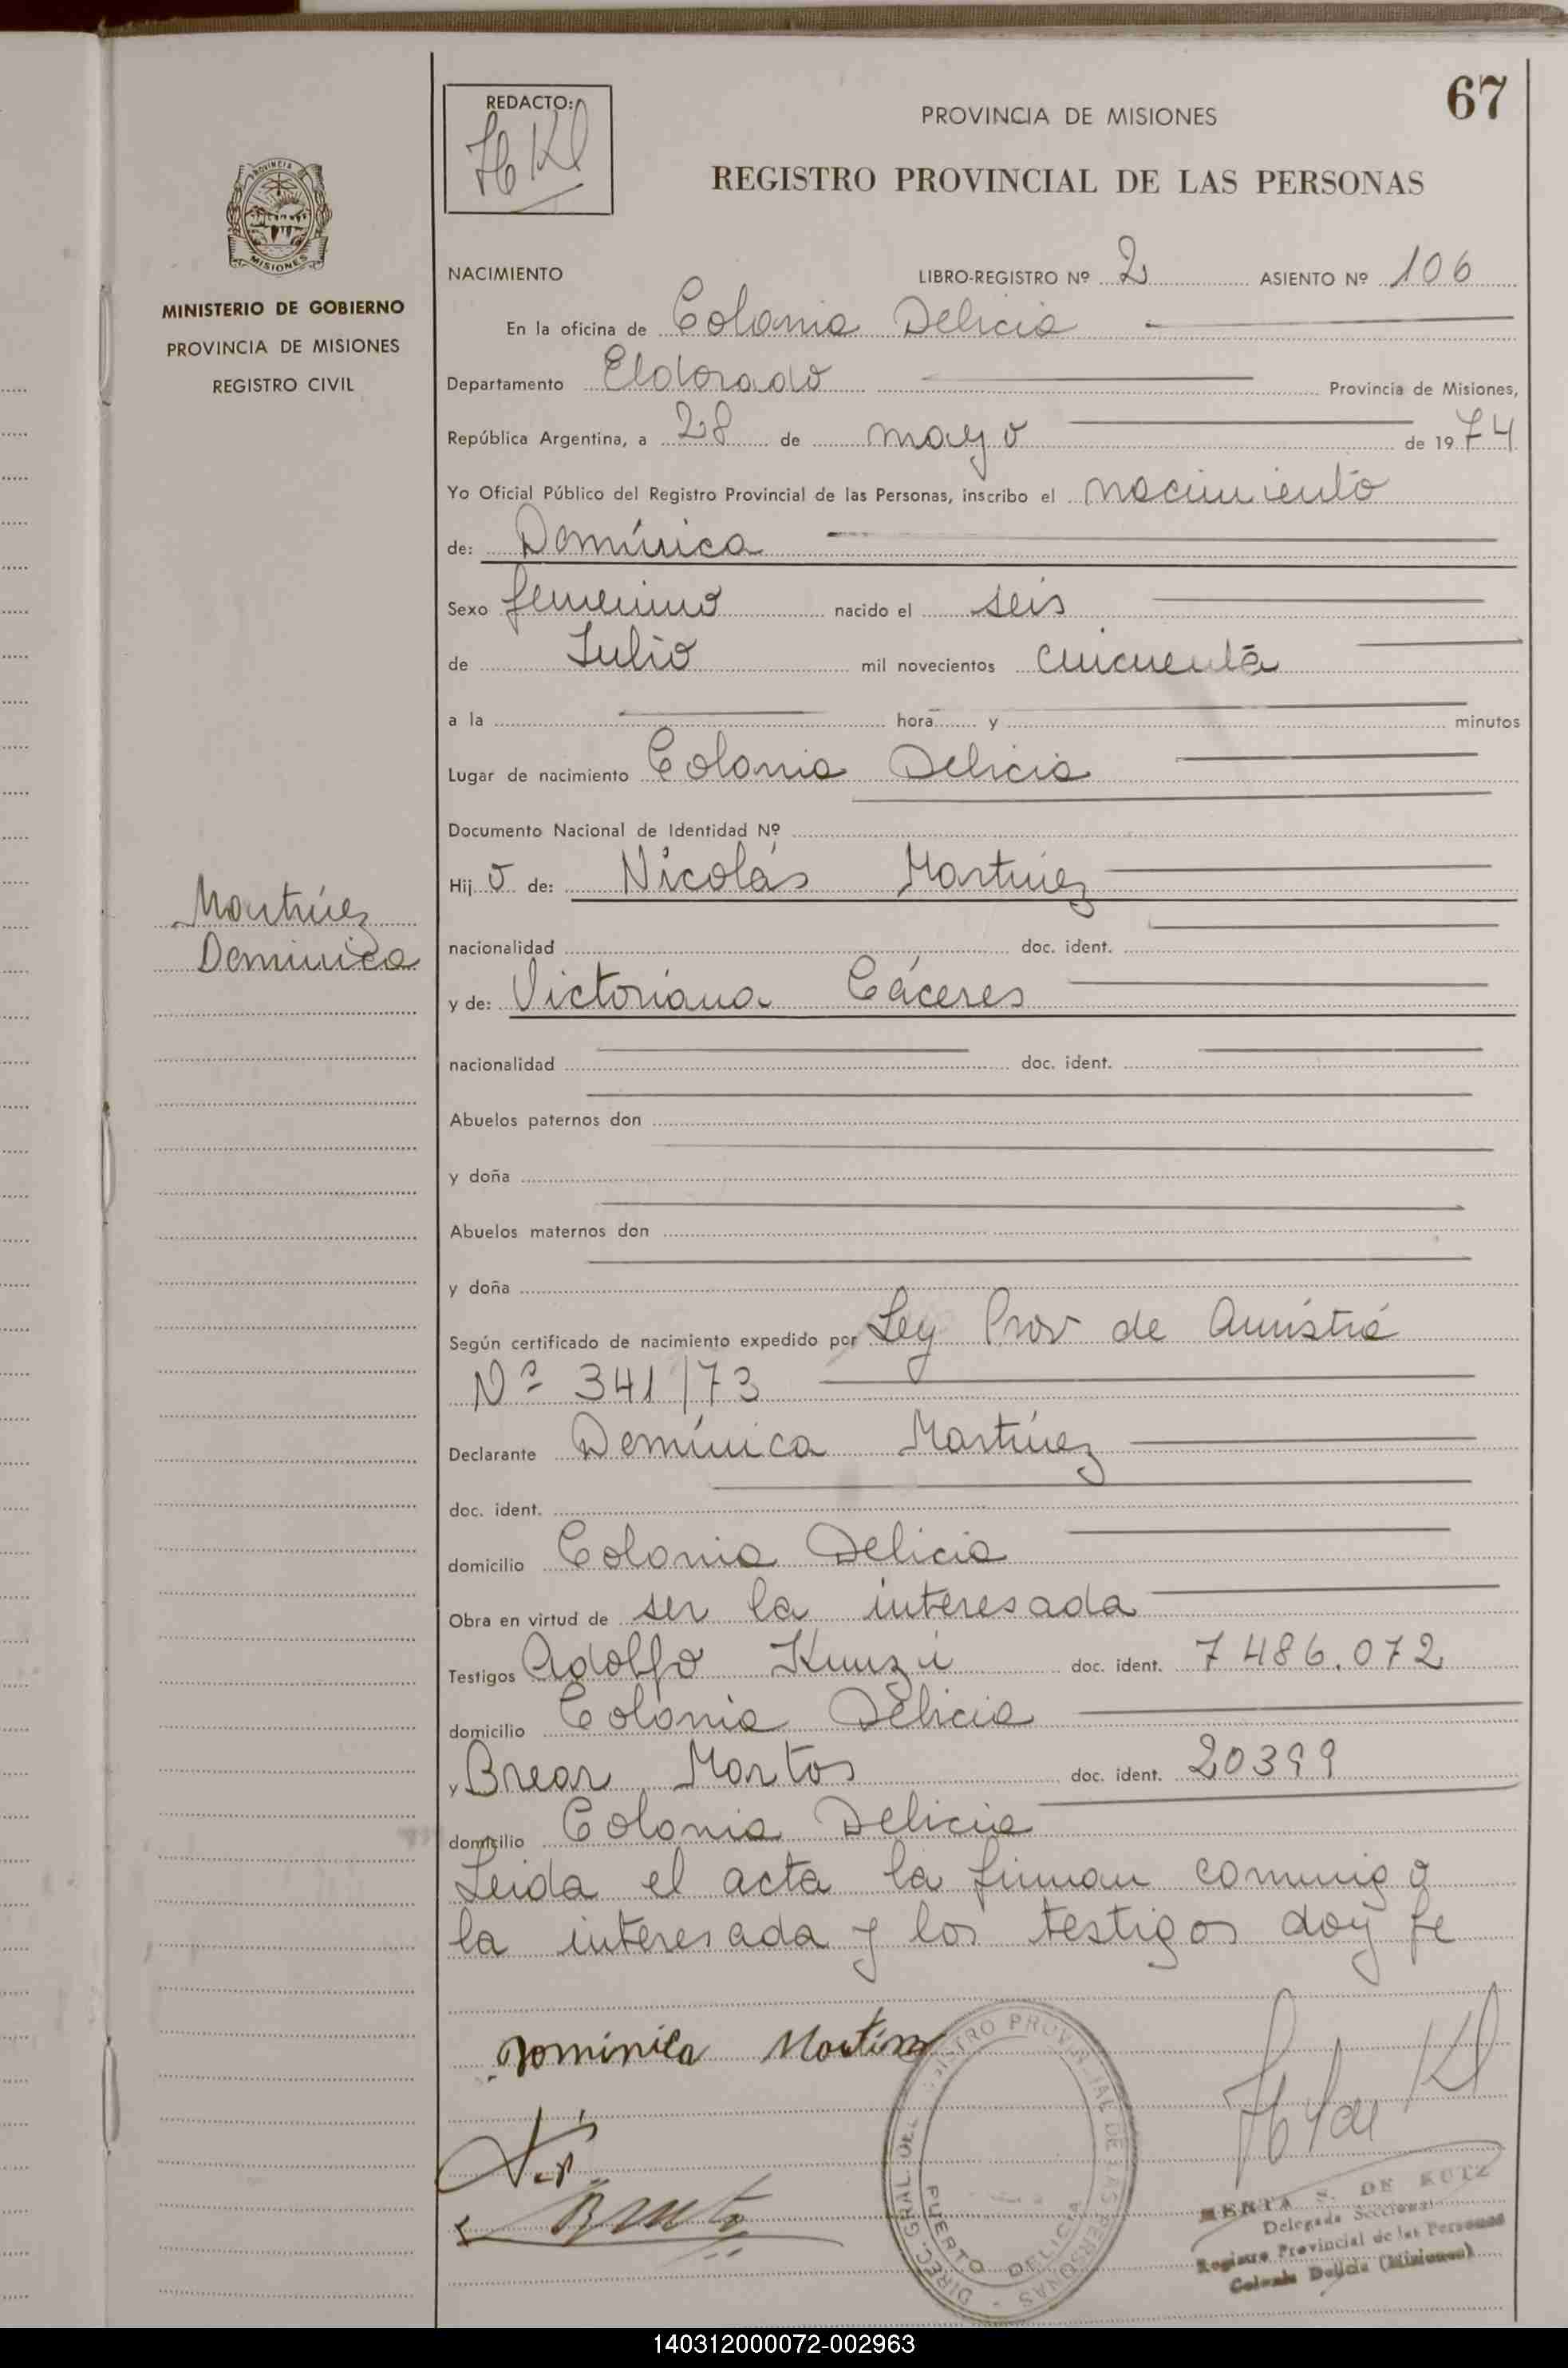 67
REDACTO:
PROVINCIA DE MISIONES
REGISTRO PROVINCIAL DE LAS PERSONAS
PROVINCIA
MISIONES
MINISTERIO DE GOBIERNO
PROVINCIA DE MISIONES
REGISTRO CIVIL
NACIMIENTO LIBRO-REGISTRO Nº 2 ASIENTO Nº 106
En la oficina de Colonia Delicia
Departamento Eldorado Provincia de Misiones,
República Argentina, a 28 de mayo de 1974
Yo Oficial Público del Registro Provincial de las Personas, inscribo el nacimiento
de: Domínica
Sexo femenino nacido el seis
de Julio mil novecientos cincuenta
a la hora y minutos
Lugar de nacimiento Colonia Delicia
Documento Nacional de Identidad Nº
Hijo de: Nicolás Martínez
Martínez
Dominica
nacionalidad doc. ident.
y de: Victoriana Cáceres
nacionalidad doc. ident.
Abuelos paternos don
y doña
Abuelos maternos don
y doña
Según certificado de nacimiento expedido por Ley Prov de Amnistía
Nº 341/73
Declarante Domínica Martínez
doc. ident.
domicilio Colonia Delicia
Obra en virtud de ser la interesada
Testigos Adolfo Kunzi doc. ident. 7486.072
domicilio Colonia Delicia
y Brear Martos doc. ident. 20399
domicilio Colonia Delicia
Leida el acta la firman conmigo
la interesada y los testigos doy fe
Dominica Martinez
DIREC. GRAL. DEL REGISTRO PROVINCIAL DE LAS PERSONAS
PUERTO DELICIA
DE KUTZ
Delegada Seccional
Registro Provincial de las Personas
Colonia Delicia (Misiones)
140312000072-002963